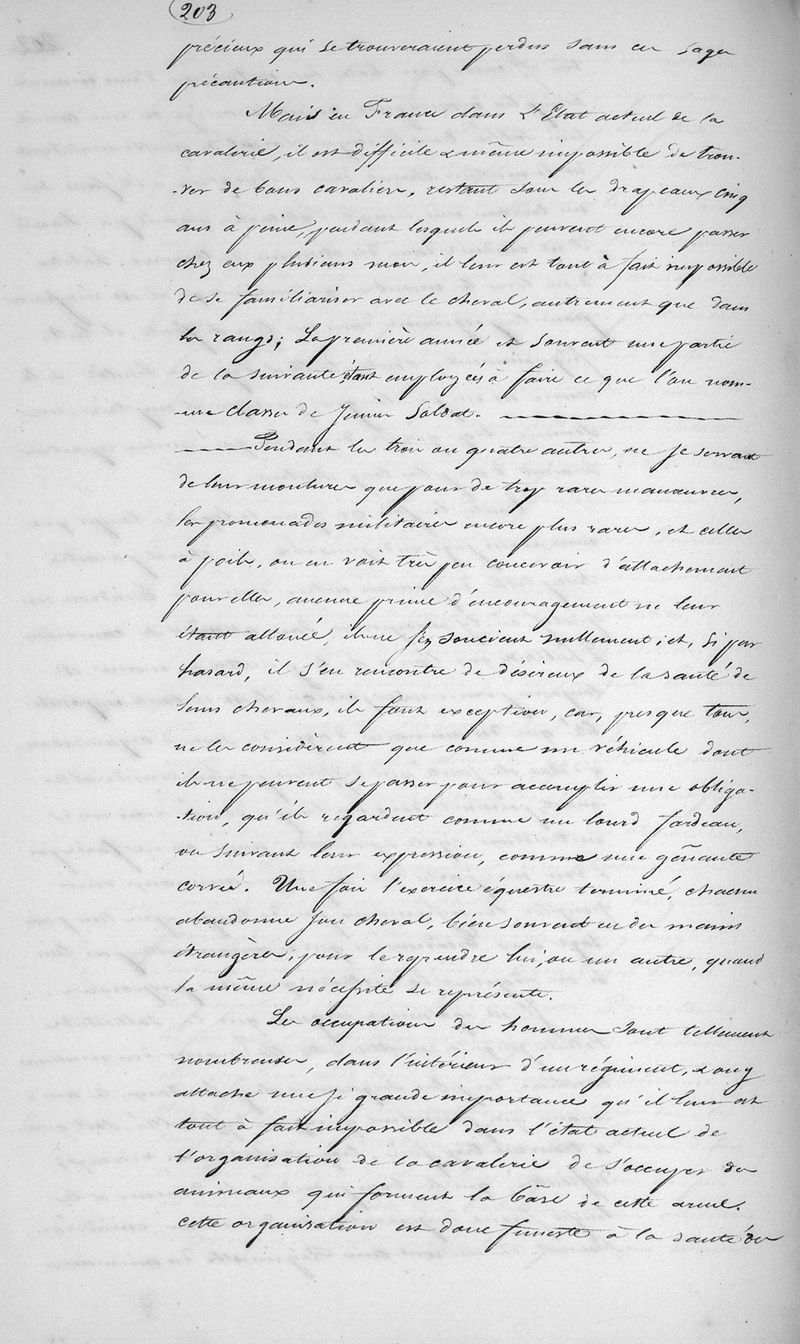 203
précieux qui se trouveraient perdus sans ces sages
précautions.
Mais en France dans l'Etat actuel de la
cavalerie, il est difficile & même impossible de trou-
-ver de bons cavaliers, restant sous les drapeaux cinq
ans à peine, pendant lesquels ils peuvent encore passer
chez eux plusieurs mois, il leur est tout à fait impossible
de se familiariser avec le cheval, autrement que dans
les rangs; La première année et souvent une partie
de la suivante étant employées à faire ce que l'on nom-
-me classes de Jeunes Soldats.
Pendant les trois ou quatre autres, ne se servant
de leurs montures que pour de trop rares manœuvres,
les promenades militaires encore plus rares, et celles
à poil, on en voit très peu concevoir d'attachement
pour elles, aucune prime d'encouragement ne leur
étant allouée, ils ne s'en soucient nullement; et, si par
hasard, il s'en rencontre de désireux de la santé de
leurs chevaux, ils font exception, car, presque tous,
ne les considèrent que comme un véhicule dont
ils ne peuvent se passer pour accomplir une obliga-
-tion, qu'ils regardent comme un lourd fardeau,
ou suivant leur expression, comme une gênante
corvée. Une fois l'exercice équestre terminé, chacun
abandonne son cheval, bien souvent en des mains
étrangères, pour le reprendre lui, ou un autre, quand
la même nécessité se représente.
Les occupations des hommes sont tellement
nombreuses, dans l'intérieur d'un régiment, & on y
attache une si grande importance qu'il leur est
tout à fait impossible dans l'état actuel de
l'organisation de la cavalerie de s'occuper des
animaux qui forment la bâse de cette arme.
cette organisation est donc funeste à la santé des